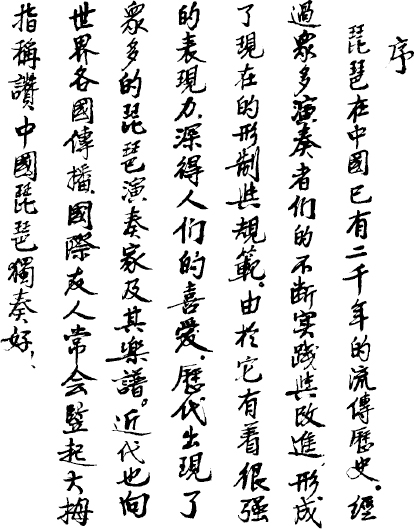 序
琵琶在中国已有二千年的流傳歷史。經
過眾多演奏者们的不断实践與改進,形成
了現在的形制與規範。由於它有着很强
的表現力,深得人们的喜愛。歷代出現了
眾多的琵琶演奏家及其樂譜。近代也向
世界各國傳播,國際友人常会竖起大拇
指稱讚:中國琵琶獨奏好!